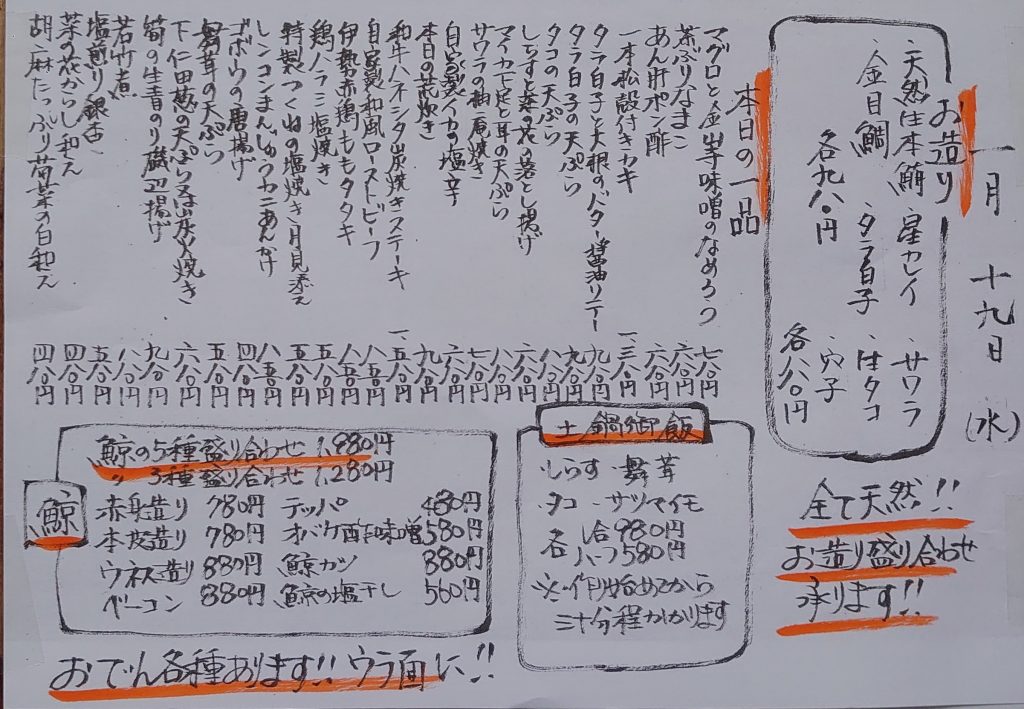 一月十九日(水)
お造り
・天然生本鮪・星カレイ・サワラ
・金目鯛・タラ白子・生タコ
・穴子
各九八〇円
各八八〇円
全て天然!!
お造り盛り合わせ
承ります!!
本日の一品
マグロと金山寺味噌のなめろう 七八〇円
茶ぶりなまこ 六八〇円
あん肝ポン酢 六八〇円
一本松殻付きカキ 一、三八〇円
タラ白子と大根のバター醤油ソテー 九八〇円
タラ白子の天ぷら 九八〇円
タコの天ぷら 八八〇円
しらすと菜の花の落とし揚げ 六八〇円
マイカ下足と耳の天ぷら
サワラの柚庵焼き
自家製イカの塩辛
本日の荒炊き
和牛ハネシタ炭焼きステーキ
自家製和風ローストビーフ
伊勢赤鶏ももタタキ
鶏ハラミ塩焼き
特製つくねの塩焼き月見添え
レンコンまんじゅうカニあんかけ
ゴボウの唐揚げ
舞茸の天ぷら 五八〇円
下仁田葱の天ぷら又は炭火焼き 六八〇円
筍の生青のり磯辺揚げ 九八〇円
若竹煮 八八〇円
塩煎り銀杏 五八〇円
菜の花からし和え 四八〇円
胡麻たっぷり菊菜の白和え 四八〇円
土鍋御飯
・しらす・舞茸
・タコ・サツマイモ
各 1合980円
ハーフ580円
※作り始めてから
三十分程かかります
鯨
鯨の5種盛り合わせ 1,880円
〃 3種盛り合わせ 1,280円
赤身造り 780円 テッパ 480円
本皮造り 780円 オバケ酢味噌 580円
ウネス造り 880円 鯨カツ 880円
ベーコン 880円 鯨の塩干し 560円
おでん各種あります!!ウラ面に!!